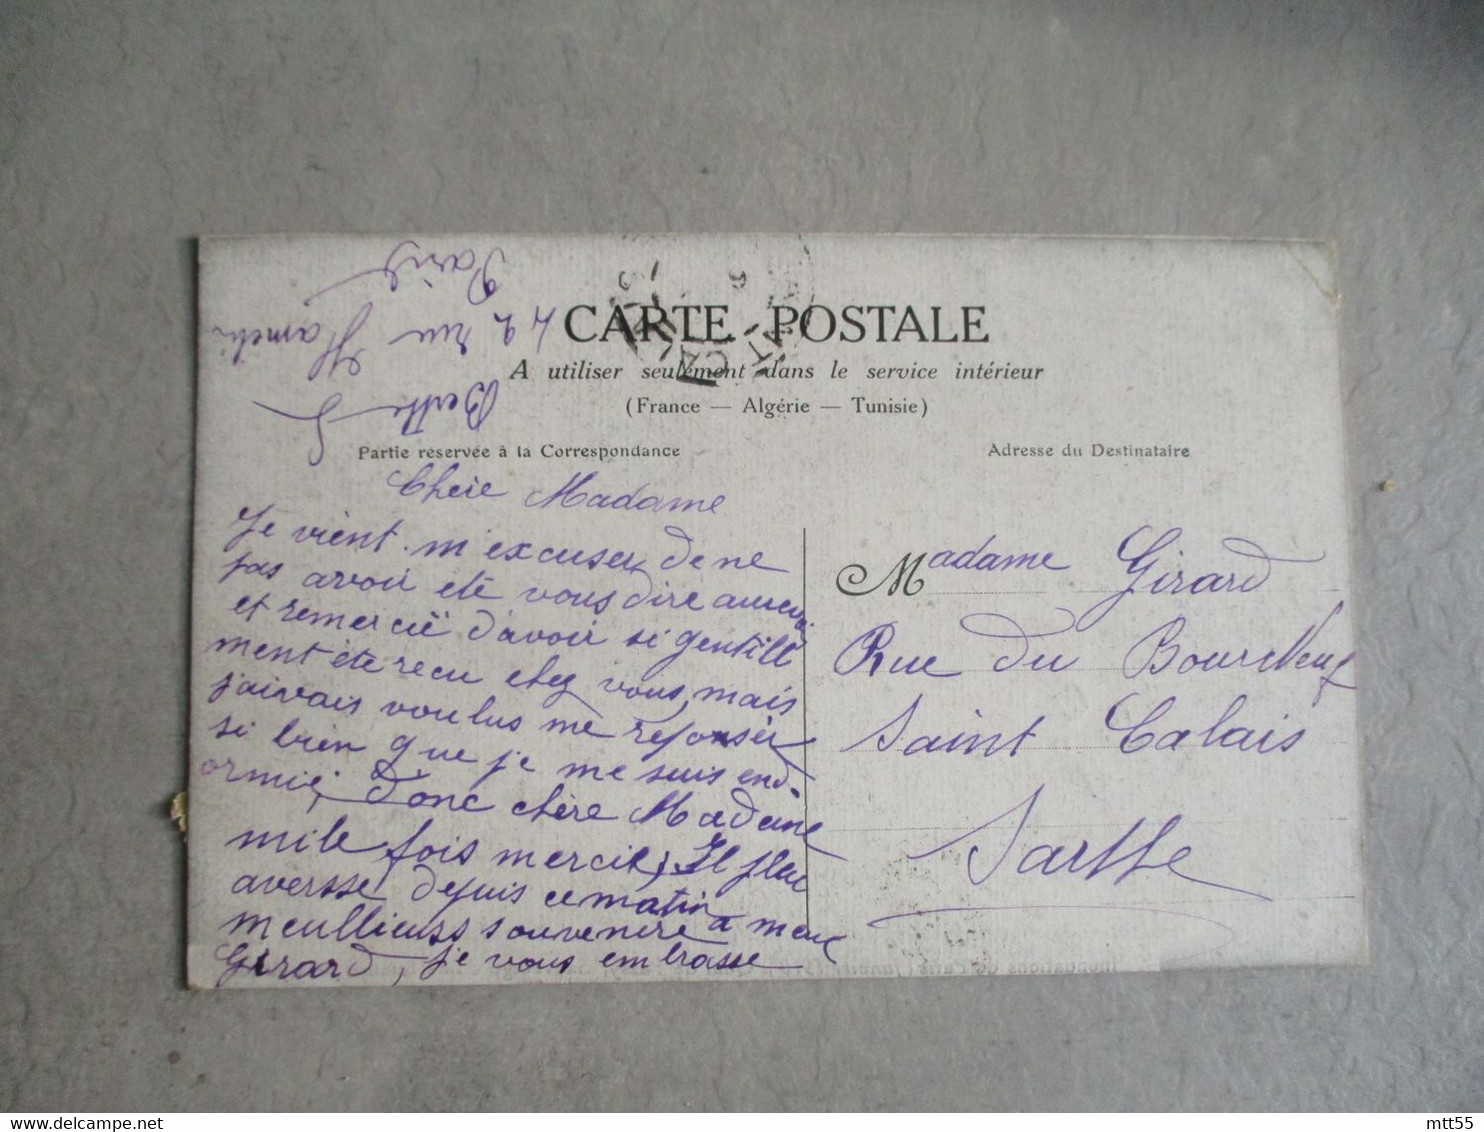 CARTE POSTALE
A utiliser seulement dans le service intérieur
(France — Algérie — Tunisie)
Partie réservée à la Correspondance
Adresse du Destinataire
Chere Madame
Je vient m'excuser de ne
pas avoir eté vous dire aurevoir
et remercié d'avoir si gentill
ment éte recu chez vous, mais
j'aivais voulus me reposer
si bien que je me suis end-
ormie, donc chère Madame
mile fois mercie, Il pleu
aversse depuis ce matin
meulliеuss souvenire a meux
Girard, je vous embrasse
Berthe
42 rue Hamelin
Paris
Madame Girard
Rue du BourcNeuf
Saint Calais
Sarthe
Inondations de Paris (Janvier
www.delcampe.net
mtt55